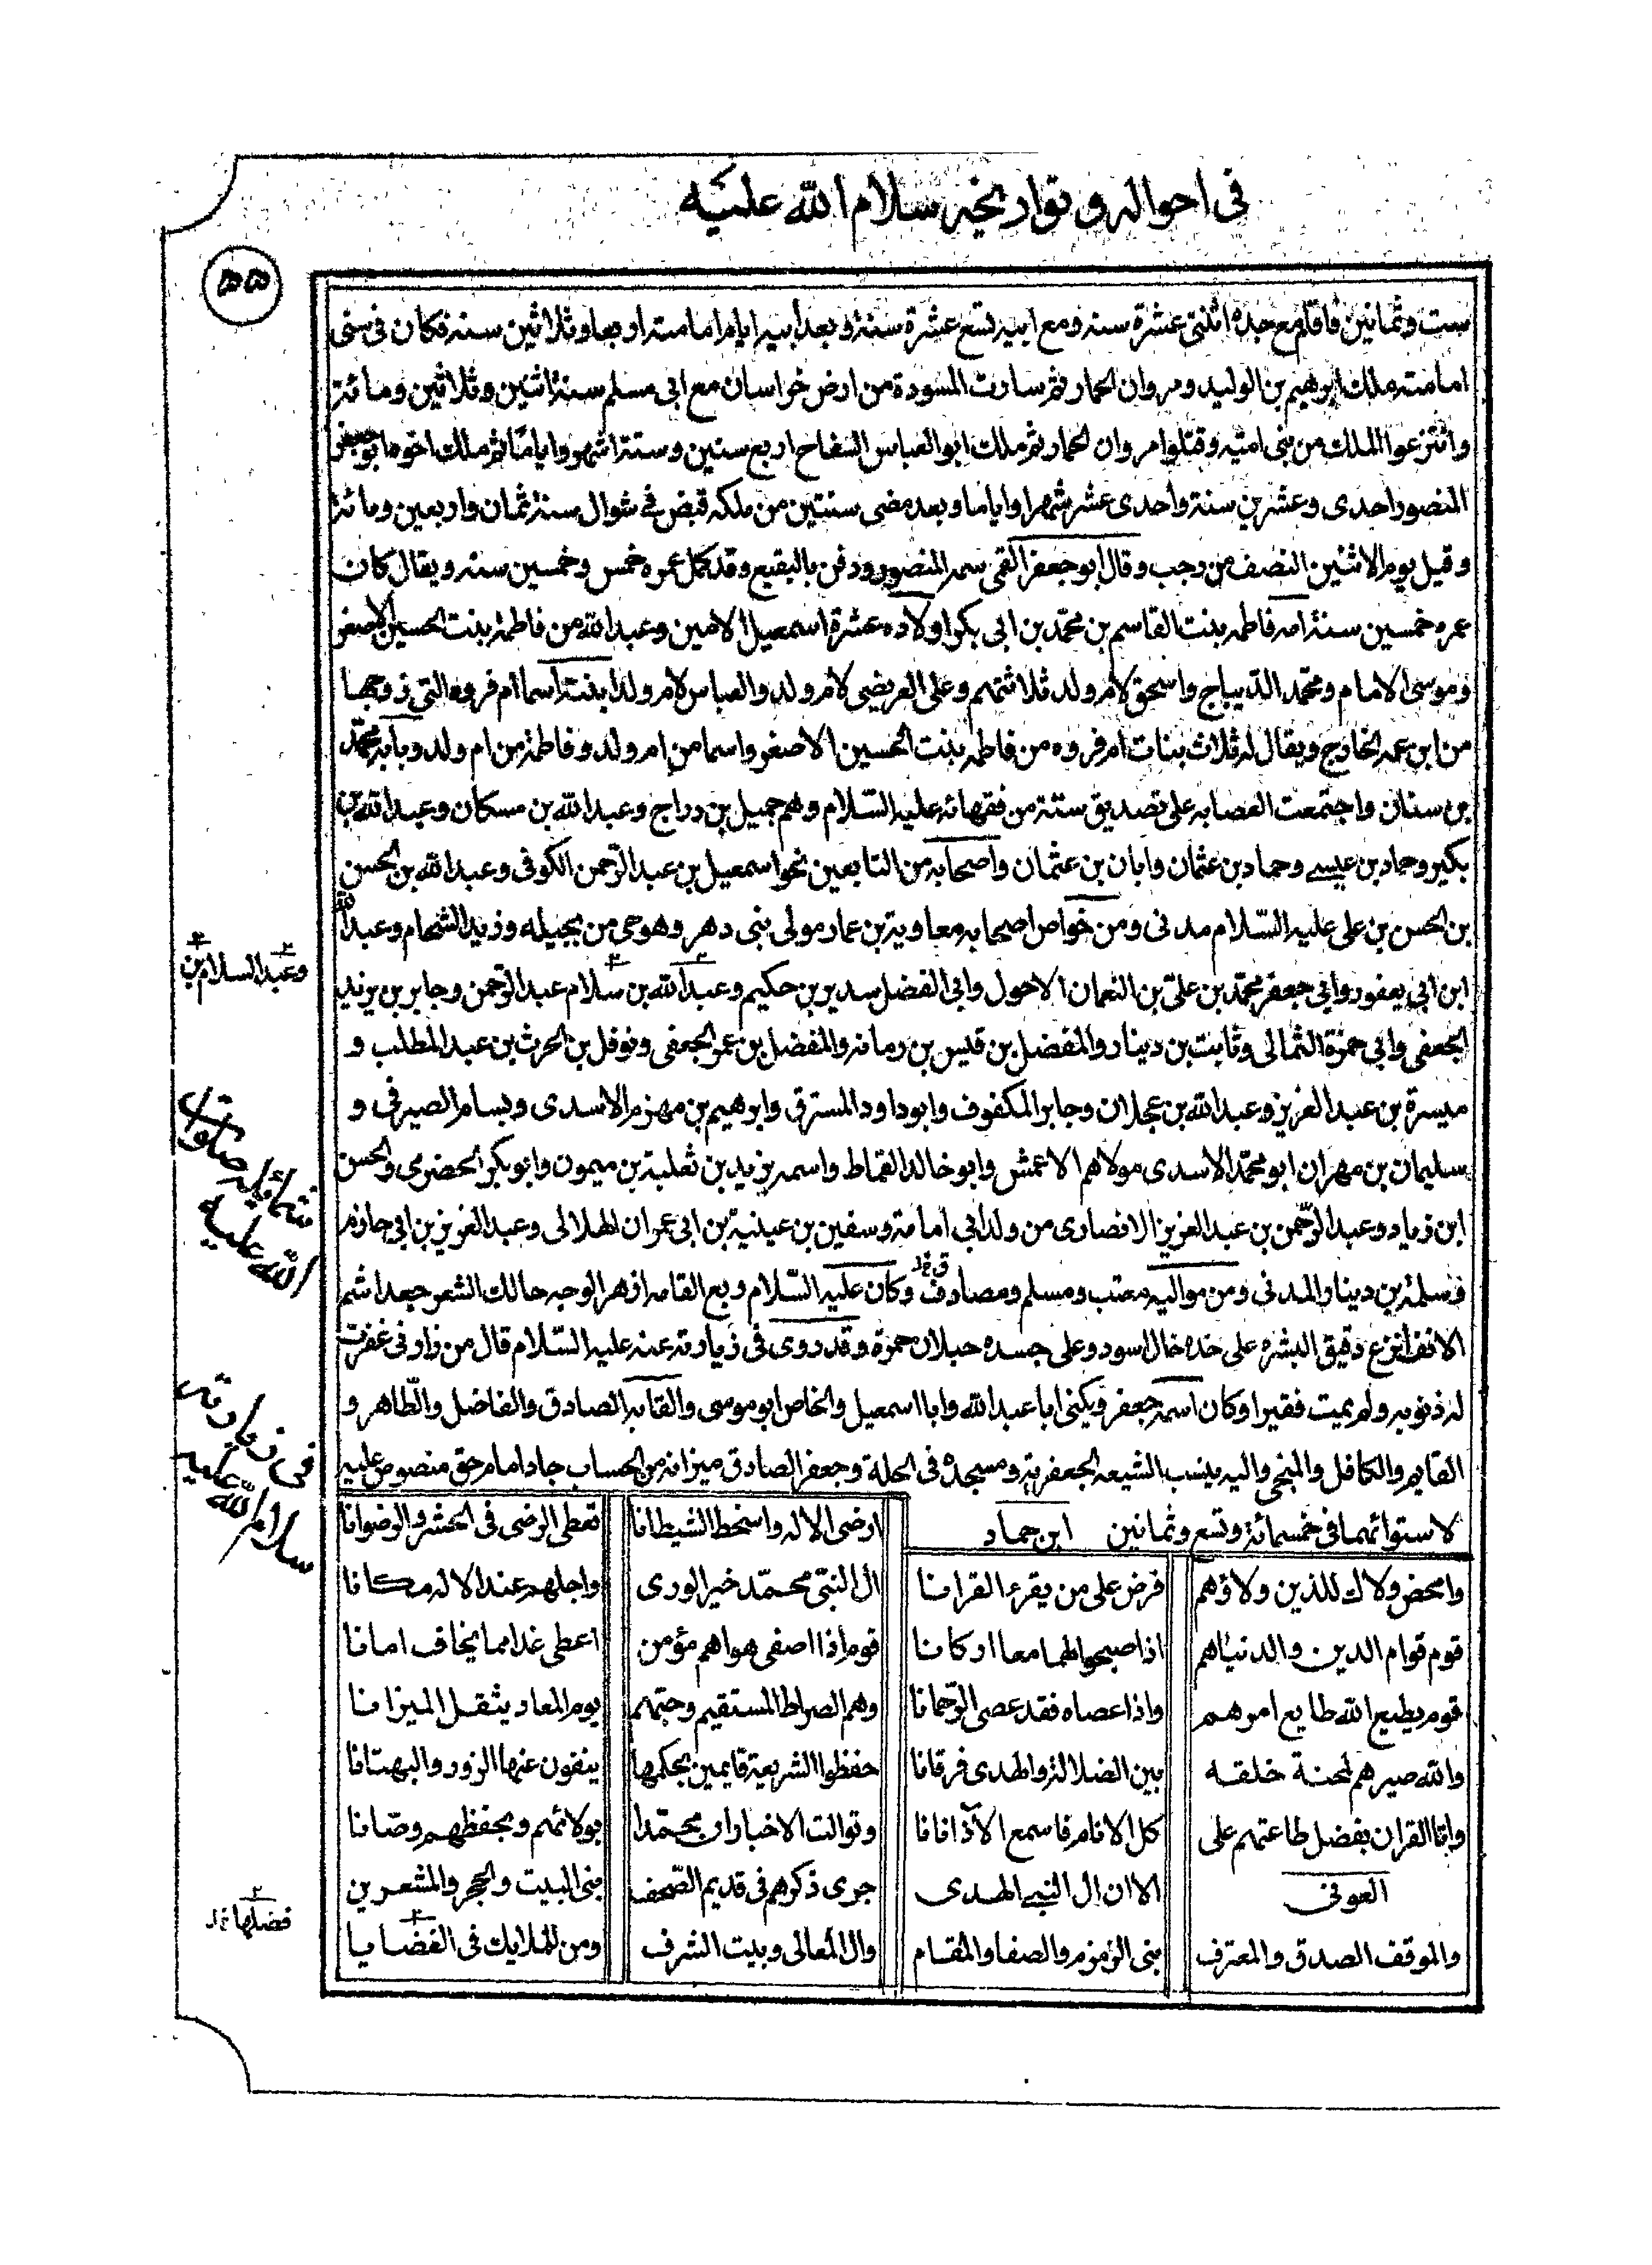 في احواله وتواريخه سلام الله عليه
ست وثمانين فاقام مع جده اثنتى عشرة سنه ومع ابيه تسع عشرة سنة وبعد ابيه ايام امامته اربعا وثلاثين سنه فكان فى سنى
امامته ملك ابرهيم بن الوليد ومروان الحمار ثم سارت المسودة من ارض خراسان مع ابى مسلم سنة اثنين وثلاثين ومائة
وانتزعوا الملك من بنى امية وقتلوا مروان الحمار ثم ملك ابو العباس السفاح اربع سنين وستة اشهر واياما ثم ملك اخوه ابو جعفر
المنصور احدى وعشرين سنة واحدى عشر شهرا واياما وبعد مضى سنتين من ملكه قبض في شوال سنة ثمان واربعين ومائة
وقيل يوم الاثنين النصف من رجب وقال ابو جعفر القمى سمه المنصور ودفن بالبقيع وقد كمل عمره خمس وخمسين سنه ويقال كان
عمره خمسين سنة امه فاطمه بنت القاسم بن محمد بن ابى بكر اولاده عشرة اسمعيل الامين وعبد الله من فاطمة بنت الحسين الاصغر
وموسى الامام ومحمد الديباج واسحق لام ولد ثلاثتهم وعلى العريضى لام ولد والعباس لام ولد ابنته اسما ام فروه التي زوجها
من ابن عمه الخارج ويقال له ثلاث بنات ام فروه من فاطمه بنت الحسين الاصغر واسما من ام ولد وفاطمة من ام ولد وبابه محمد
بن سنان واجتمعت العصابه على تصديق ستة من فقهائه عليه السلام وهم جميل بن دراج وعبد الله بن مسكان وعبد الله بن
بكير وحماد بن عيسى وحماد بن عثمان وابان بن عثمان واصحابه من التابعين نحو اسمعيل بن عبد الرحمن الكوفى وعبد الله بن الحسن
بن الحسن بن على عليه السلام مدنى ومن خواص اصحابه معاوية بن عمار مولى بنى دهر وهو حى من بجيله وزيد الشحام وعبد الله
ابن ابى يعفور وابي جعفر محمد بن على بن النعمان الاحول وابي الفضل سدير بن حكيم وعبد الله بن سلام عبد الرحمن وجابر بن يزيد
وعبد السلام بن
الجعفى وابي حمزة الثمالى وثابت بن دينار والمفضل بن قيس بن رمانه والمفضل بن عمر الجعفى ونوفل بن الحرث بن عبد المطلب و
ميسرة بن عبد العزيز وعبد الله بن عجلان وجابر المكفوف وابو داود المسترق وابرهيم بن مهزم الاسدى وبسام الصيرفى و
سليمان بن مهران ابو محمد الاسدى مولاهم الاعمش وابو خالد القماط واسمه يزيد بن ثعلبة بن ميمون وابو بكر الحضرمى والحسن
شمايله صلوات
الله عليه
ابن زياد وعبد الرحمن بن عبد العزيز الانصارى من ولد ابي امامة وسفين بن عيينة بن ابى عمران الهلالى وعبد العزيز بن ابي حازم
وسلمة بن دينار المدنى ومن مواليه معتب ومسلم ومصادف وكان عليه السلام ربع القامه ازهر الوجه حالك الشعر جعد اشم
الانف انزع دقيق البشره على خده خال اسود وعلى جسده حبلان حمرة وقد روى فى زيارته عنه عليه السلام قال من زارنى غفرت
له ذنوبه ولم يميت فقيرا وكان اسمه جعفر ويكنى ابا عبد الله وابا اسمعيل والخاص ابو موسى والقابه الصادق والفاضل والطاهر و
فى زيارته
سلام الله عليه
القايم والكافل والمنجى واليه ينسب الشيعه الجعفريه ومسجده فى الحلة وجعفر الصادق ميزانه من الحساب جاد امام حق منصوص عليه
لاستوائهما فى خمسمائة وتسع وثمانين ابن حماد
ارضى الاله واسخط الشيطانا تعطى الرضى فى الحشر والرضوانا
وامحض ولاك للذين ولاؤهم فرض على من يقرء القرانا ال النبى محمد خير الورى واجلهم عند الاله مكانا
قوم قوام الدين والدنياهم اذ اصبحوا لهما معا اركانا قوم اذا اصفى هواهم مؤمن اعطى غدا مما يخاف امانا
قوم يطيع الله طايع امرهم واذا عصاه فقد عصى الرحمانا وهم الصراط المستقيم وحبهم يوم المعاد يثقل الميزانا
والله صيرهم لمحنة خلقه بين الضلالة والهدى فرقانا حفظوا الشريعة قايمين بحكمها ينفون عنها الزور والبهتانا
واتا القران بفضل طاعتهم على كل الانام فاسمع الآذانا وتوالت الاخبار ان محمدا بولائهم وبحفظهم وصانا
العونى الا ان ال النبى الهدى جرى ذكرهم فى قديم الصحف بنى البيت والحجر والمشعرين
والموقف الصدق والمعترف بنى الزمزم والصفا والمقام وال المعالى وبيت الشرف ومن للملايك فى القضايا
فضلها